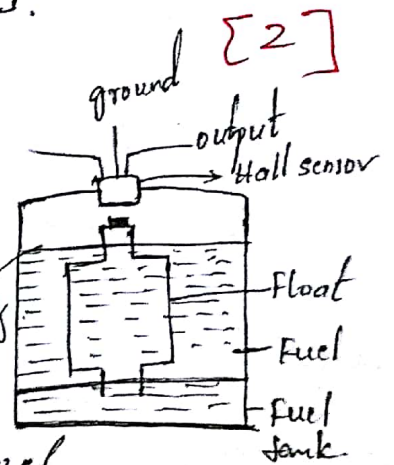 [2]
ground
output
Hall sensor
Float
Fuel
Fuel
tank